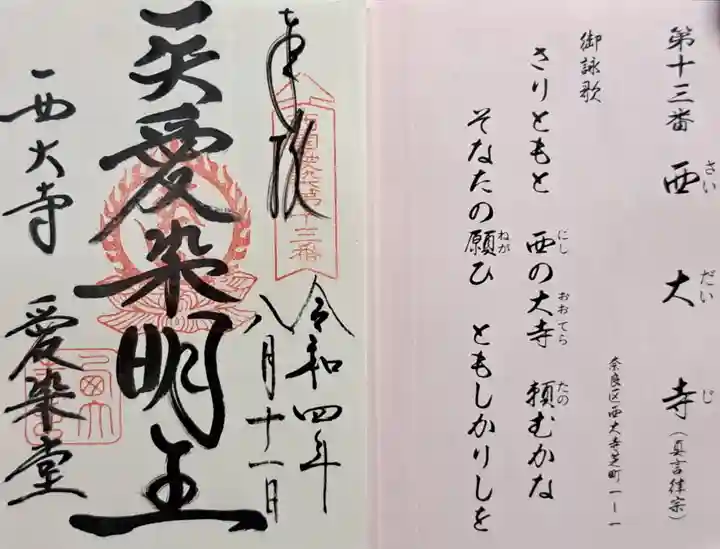 第十三番 西大寺(真言律宗)
さい だい じ
奈良区西大寺芝町一ー一
御詠歌
さりともと 西の大寺 頼むかな
にし おおてら たの
そなたの願ひ ともしかりしを
ねが
奉拝
十三番
令和四年
八月十一日
愛染明王
西大寺 愛染堂